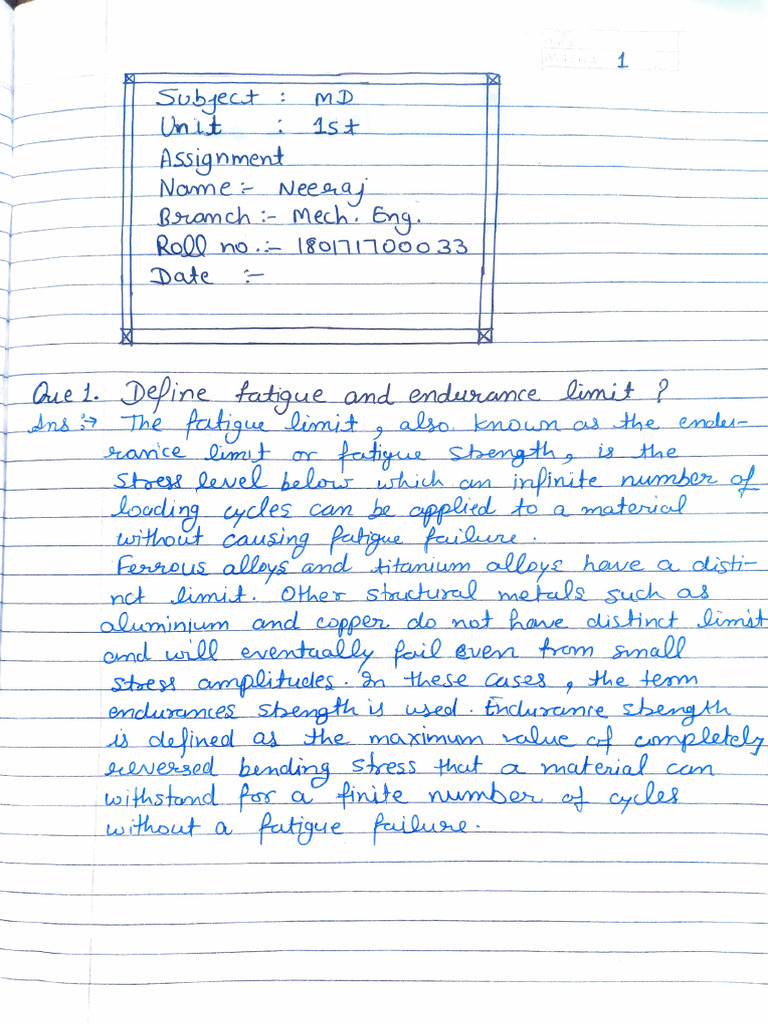 1
Subject : MD
Unit : 1st
Assignment
Name :- Neeraj
Branch :- Mech. Eng.
Roll no. :- 180171700033
Date :-
Que 1. Define fatigue and endurance limit ?
Ans :→ The fatigue limit, also known as the endu-
rance limit or fatigue strength, is the
stress level below which an infinite number of
loading cycles can be applied to a material
without causing fatigue failure.
Ferrous alloys and titanium alloys have a disti-
nct limit. Other structural metals such as
aluminium and copper do not have distinct limit
and will eventually fail even from small
stress amplitudes. In these cases, the term
endurances strength is used. Endurance strength
is defined as the maximum value of completely
reversed bending stress that a material can
withstand for a finite number of cycles
without a fatigue failure.